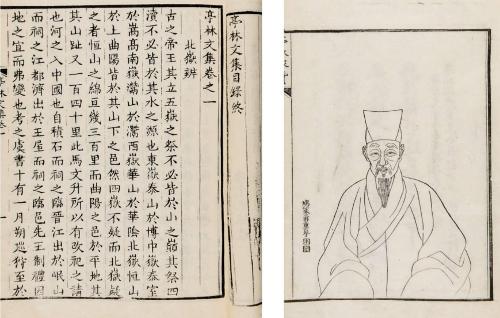 亭林文集目錄終
亭林文集卷之一
北嶽辨
古之帝王其立五嶽之祭不必皆於山之巔其祭四
瀆不必皆於其水之源也東嶽泰山於博中嶽泰室
於嵩高南嶽灊山於灊西嶽華山於華陰北嶽恒山
於上曲陽皆於其山下之邑然四嶽不疑而北嶽疑
之者恒山之緜亘幾三百里而曲陽之邑於平地其
去山趾又一百四十里此馬文升所以有改祀之請
也河之入中國也自積石而祠之臨晉江出於岷山
而祠之江都濟出於王屋而祠之臨邑先王制禮因
地之宜而弗變也考之虞書十有一月朔巡狩至於
亭林文集卷一